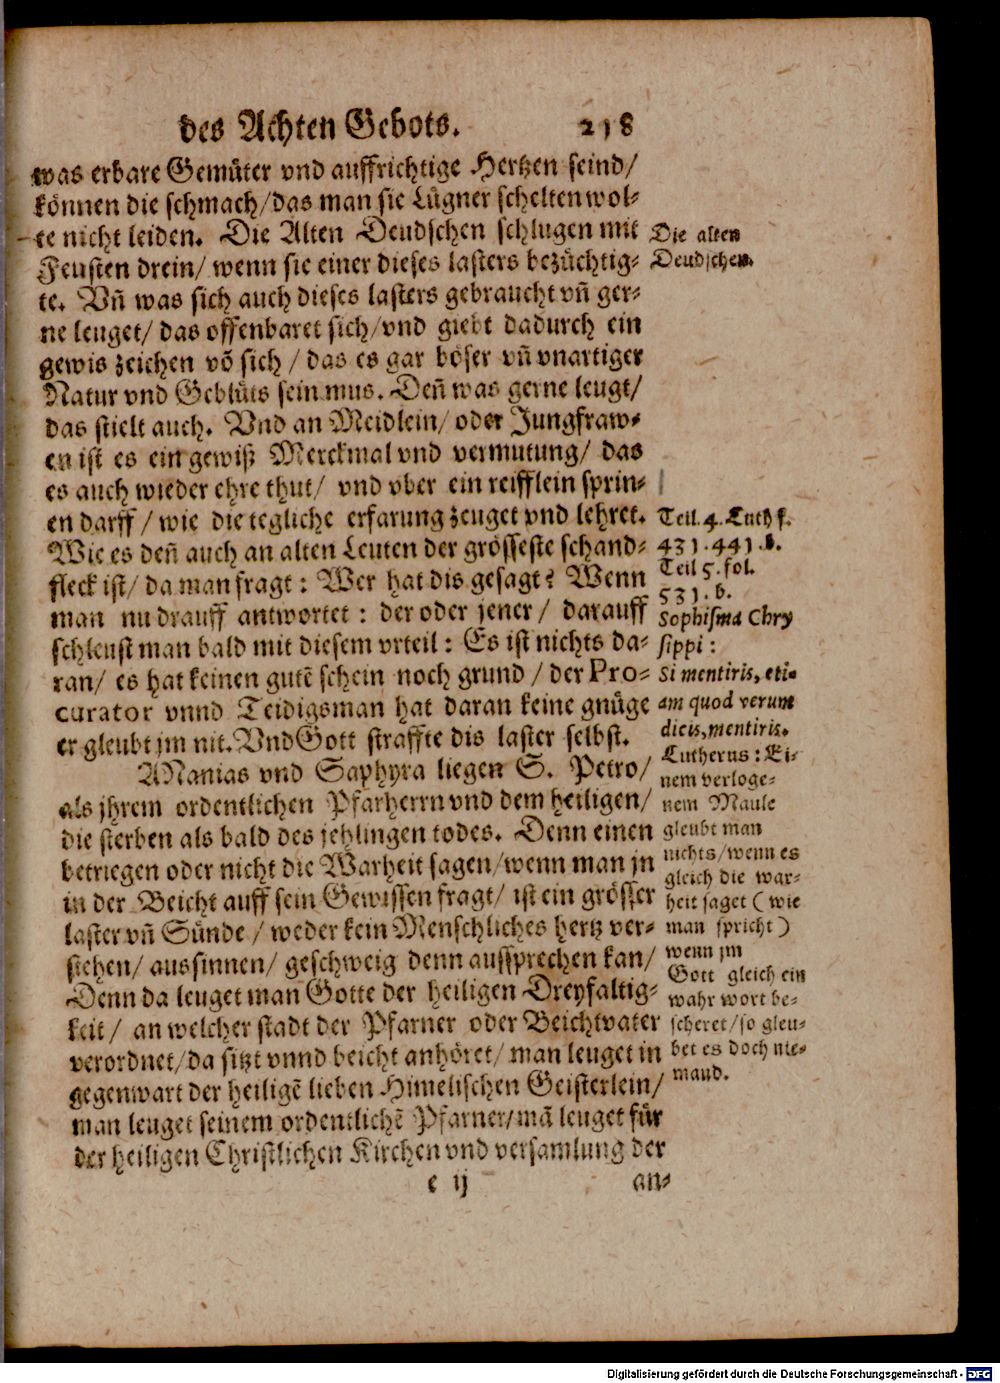 des Achten Gebots. 218
was erbare Gemüter vnd auffrichtige Hertzen seind/
können die schmach/das man sie Lügner schelten wol⸗
te nicht leiden. Die Alten Deudschen schlugen mit
Feusten drein/ wenn sie einer dieses lasters bezüchtig⸗
te. Vñ was sich auch dieses lasters gebraucht vñ ger⸗
ne leuget/ das offenbaret sich/vnd giebt dadurch ein
gewis zeichen võ sich / das es gar böser vñ vnartiger
Natur vnd Geblüts sein mus. Deñ was gerne leugt/
das stielt auch. Vnd an Meidlein/ oder Jungfraw⸗
en ist es ein gewiß Merckmal vnd vermutung/ das
es auch wieder ehre thut/ vnd vber ein reifflein sprin⸗
en darff / wie die tegliche erfarung zeuget vnd lehret.
Wie es deñ auch an alten Leuten der grösseste schand⸗
fleck ist/ da man fragt: Wer hat dis gesagt? Wenn
man nu drauff antwortet: der oder jener/ darauff
schleust man bald mit diesem vrteil: Es ist nichts da⸗
ran/ es hat keinen gutẽ schein noch grund / der Pro⸗
curator vnnd Teidigsman hat daran keine gnüge
er gleubt jm nit. Vnd Gott straffte dis laster selbst.
ANanias vnd Saphyra liegen S. Petro/
als jhrem ordentlichen Pfarherrn vnd dem heiligen/
die sterben als bald des jehlingen todes. Denn einen
betriegen oder nicht die Warheit sagen/wenn man jn
in der Beicht auff sein Gewissen fragt/ ist ein grösser
laster vñ Sünde / weder kein Menschliches hertz ver⸗
stehen/ aussinnen/ geschweig denn aussprechen kan/
Denn da leuget man Gotte der heiligen Dreyfaltig⸗
keit / an welcher stadt der Pfarner oder Beichtvater
verordnet/da sitzt vnnd beicht anhöret/ man leuget in
gegenwart der heiligẽ lieben Himelischen Geisterlein/
man leuget seinem ordentlichẽ Pfarner/mã leuget für
der heiligen Christlichen Kirchen vnd versamlung der
e ij an⸗
Die alten
Deudschen.
Teil. 4. Luth f.
431. 441. b.
Teil 5. fol.
531. b.
Sophisma Chry
sippi:
Si mentiris, eti⸗
am quod verum
dicis, mentiris.
Lutherus: Ei⸗
nem verloge⸗
nem Maule
gleubt man
nichts/wenn es
gleich die war⸗
heit saget (wie
man spricht)
wenn jm
Gott gleich ein
wahr wort be⸗
scheret/so gleu⸗
bet es doch nie⸗
mand.
Digitalisierung gefördert durch die Deutsche Forschungsgemeinschaft - DFG